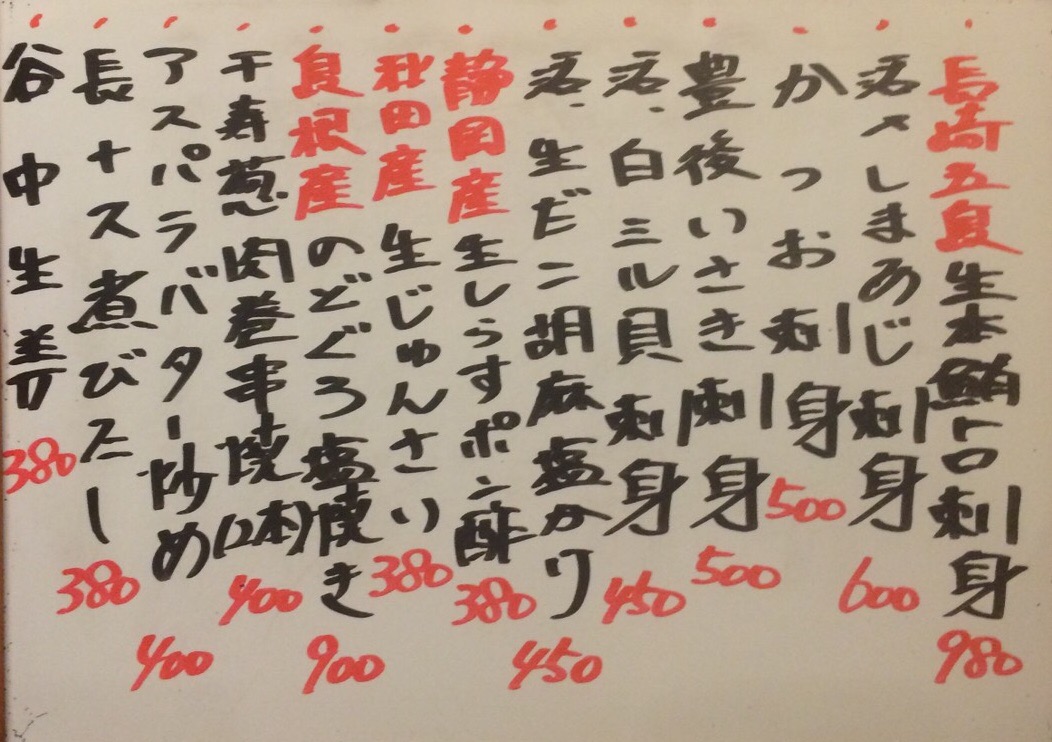 長崎五島生本鮪トロ刺身 980
活〆しまあじ刺身 600
かつお刺身 500
豊後いさき刺身 500
活、白ミル貝刺身 450
活、生だこ胡麻塩かり 450
静岡産生しらすポン酢 380
秋田産生じゅんさい 380
島根産のどぐろ塩焼き 900
千寿葱肉巻串焼(2本) 400
アスパラバター炒め 400
長ナス煮びたし 380
谷中生姜 380